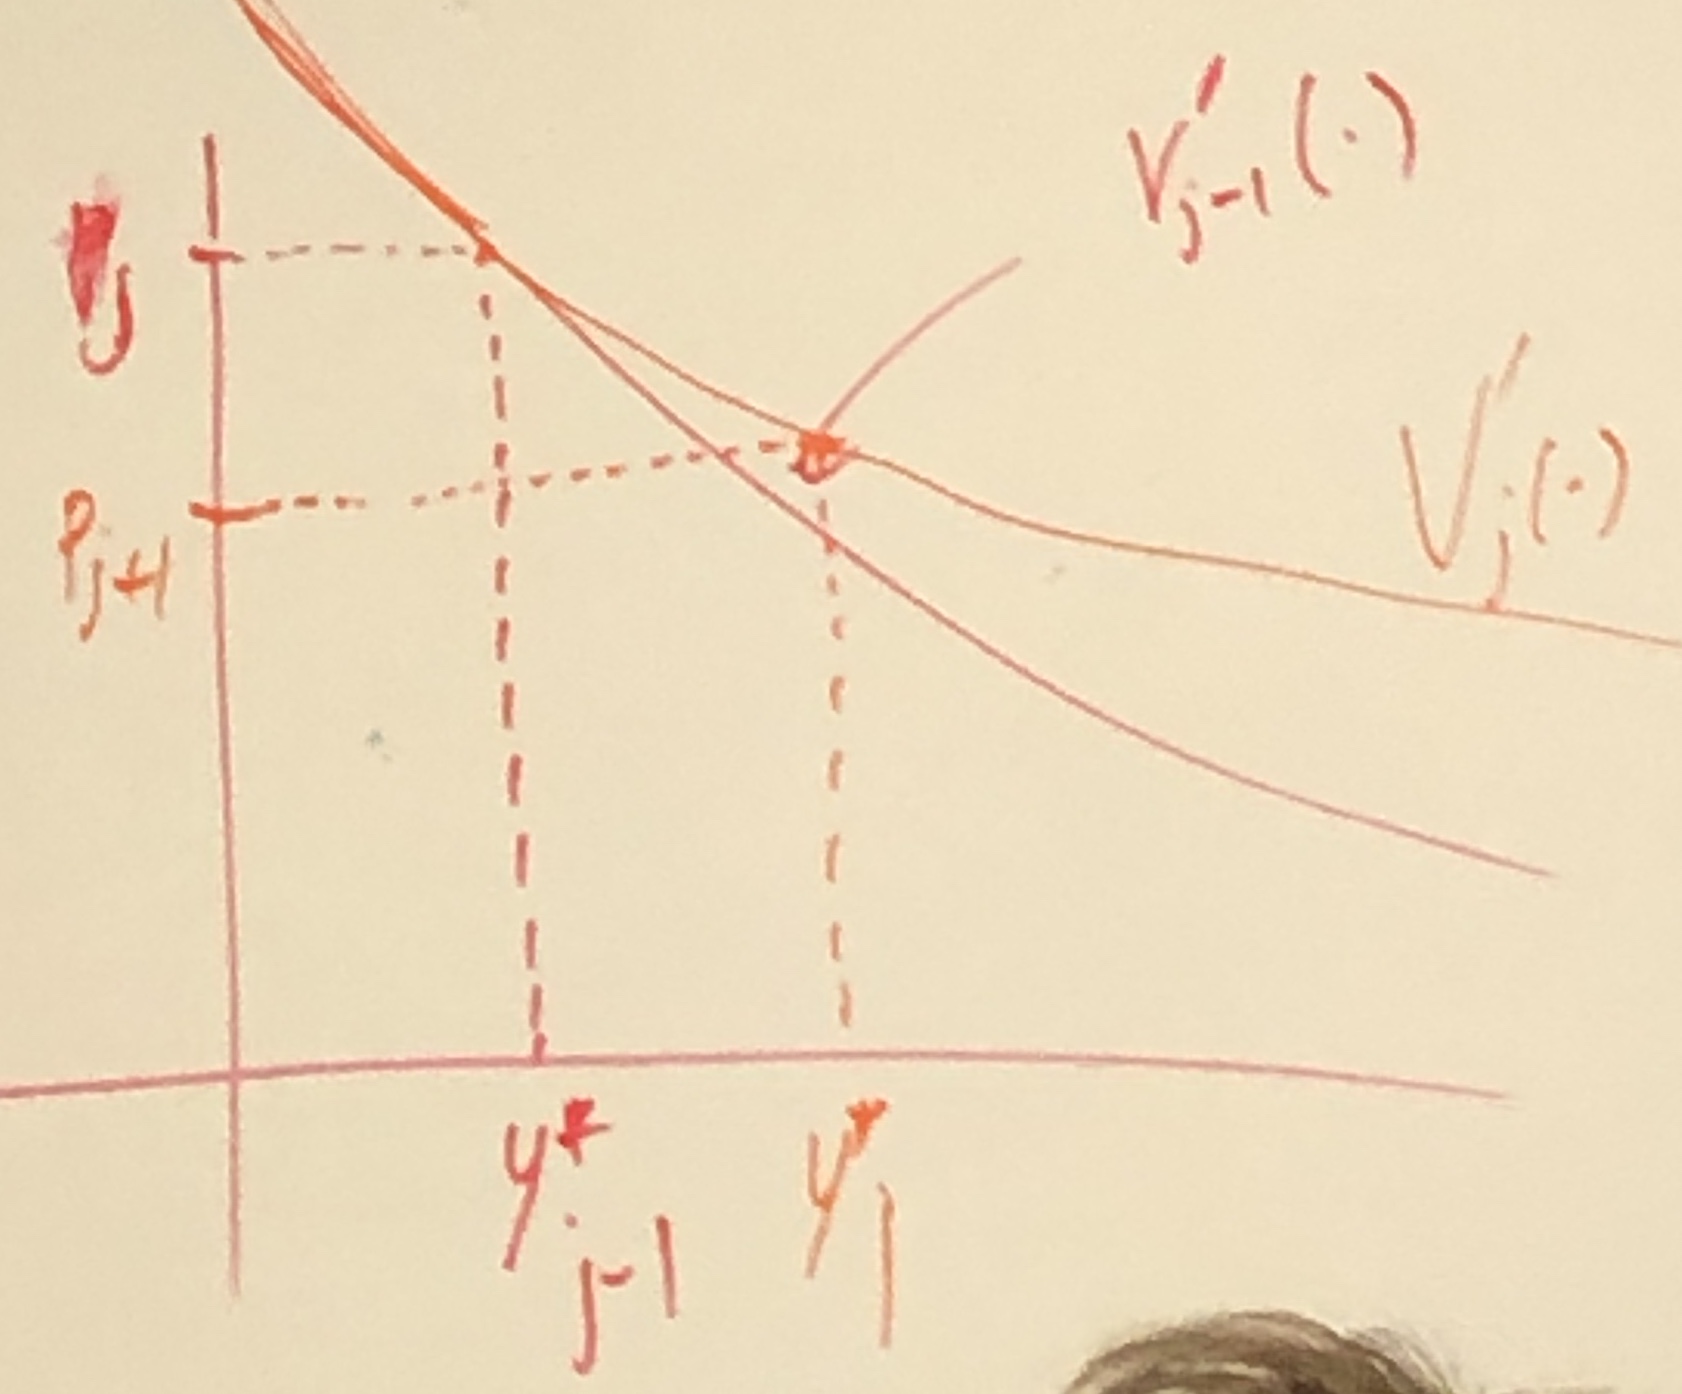 V'j-1(·)
Pj
V'j(·)
Pj+1
y*j-1
y*j